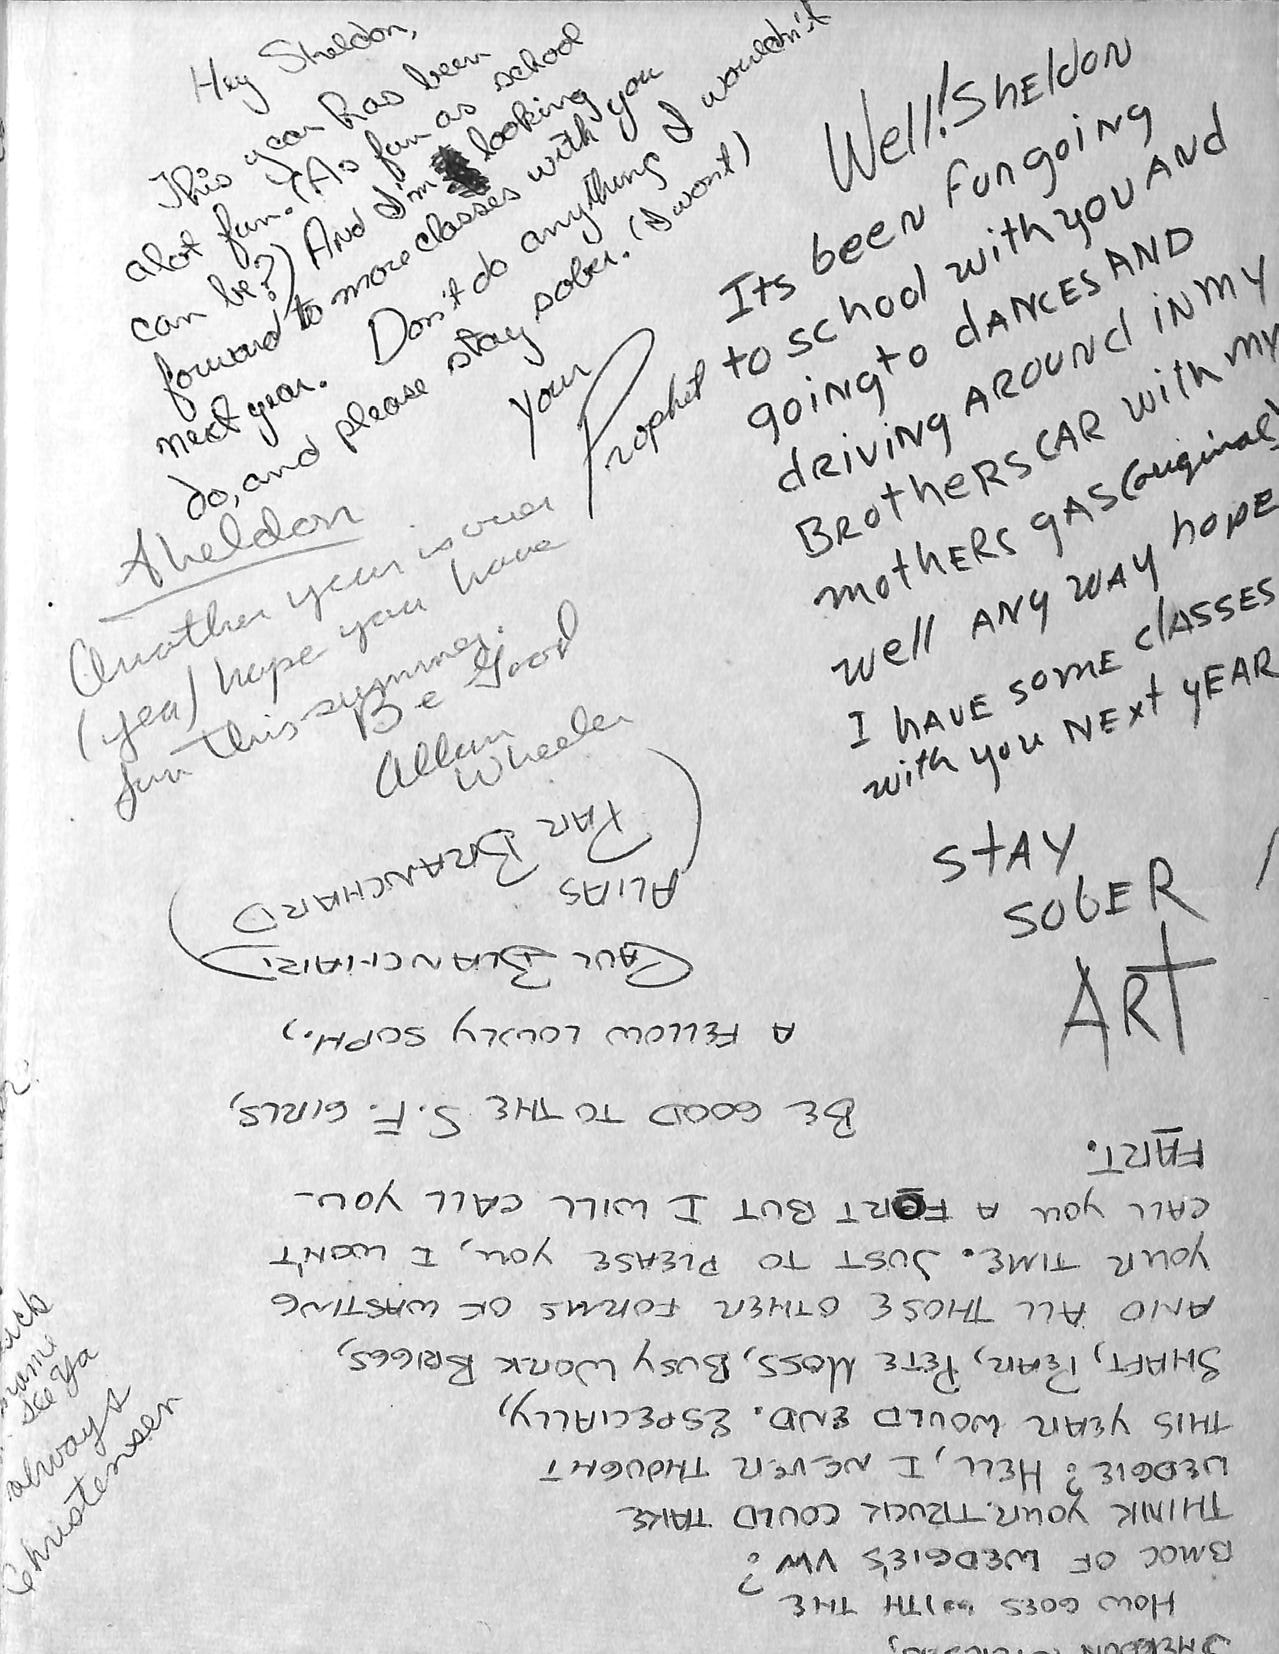 Hey Sheldon,
This year has been
alot fun. (As fun as school
can be?) And I'm looking
forward to more classes with you
next year. Don't do anything I wouldn't
do, and please stay sober. (I wont)
your
Prophet
Well! Sheldon
Its been fun going
to school with you AND
going to dANCES AND
driving AROUNd iN MY
BROthERS CAR with MY
mothERS gAS (original)
well ANY WAY hopE
I hAVE SOME clASSES
with you NExt yEAR
StAY
SObER
ARt
Sheldon
Another year is over
(yea) hope you have
fun this summer.
Be Good
Allan
Wheeler
SHELDON
HOW GOES WITH THE
BMOC OF WEDGIE'S VW?
THINK YOUR TRUCK COULD TAKE
WEDGIE? HELL, I NEVER THOUGHT
THIS YEAR WOULD END. ESPECIALLY,
SHAFT, PEAR, PETE MOSS, BUSY WORK BRIGGS,
AND ALL THOSE OTHER FORMS OF WASTING
YOUR TIME. JUST TO PLEASE YOU, I WON'T
CALL YOU A FORT BUT I WILL CALL YOU-
FART.
BE GOOD TO THE S.F. GIRLS,
A FELLOW LOWLY SOPH.,
PAUL BLANCHARD
(ALIAS
PAR BRANCHARD)
name
See Ya
always
Christensen